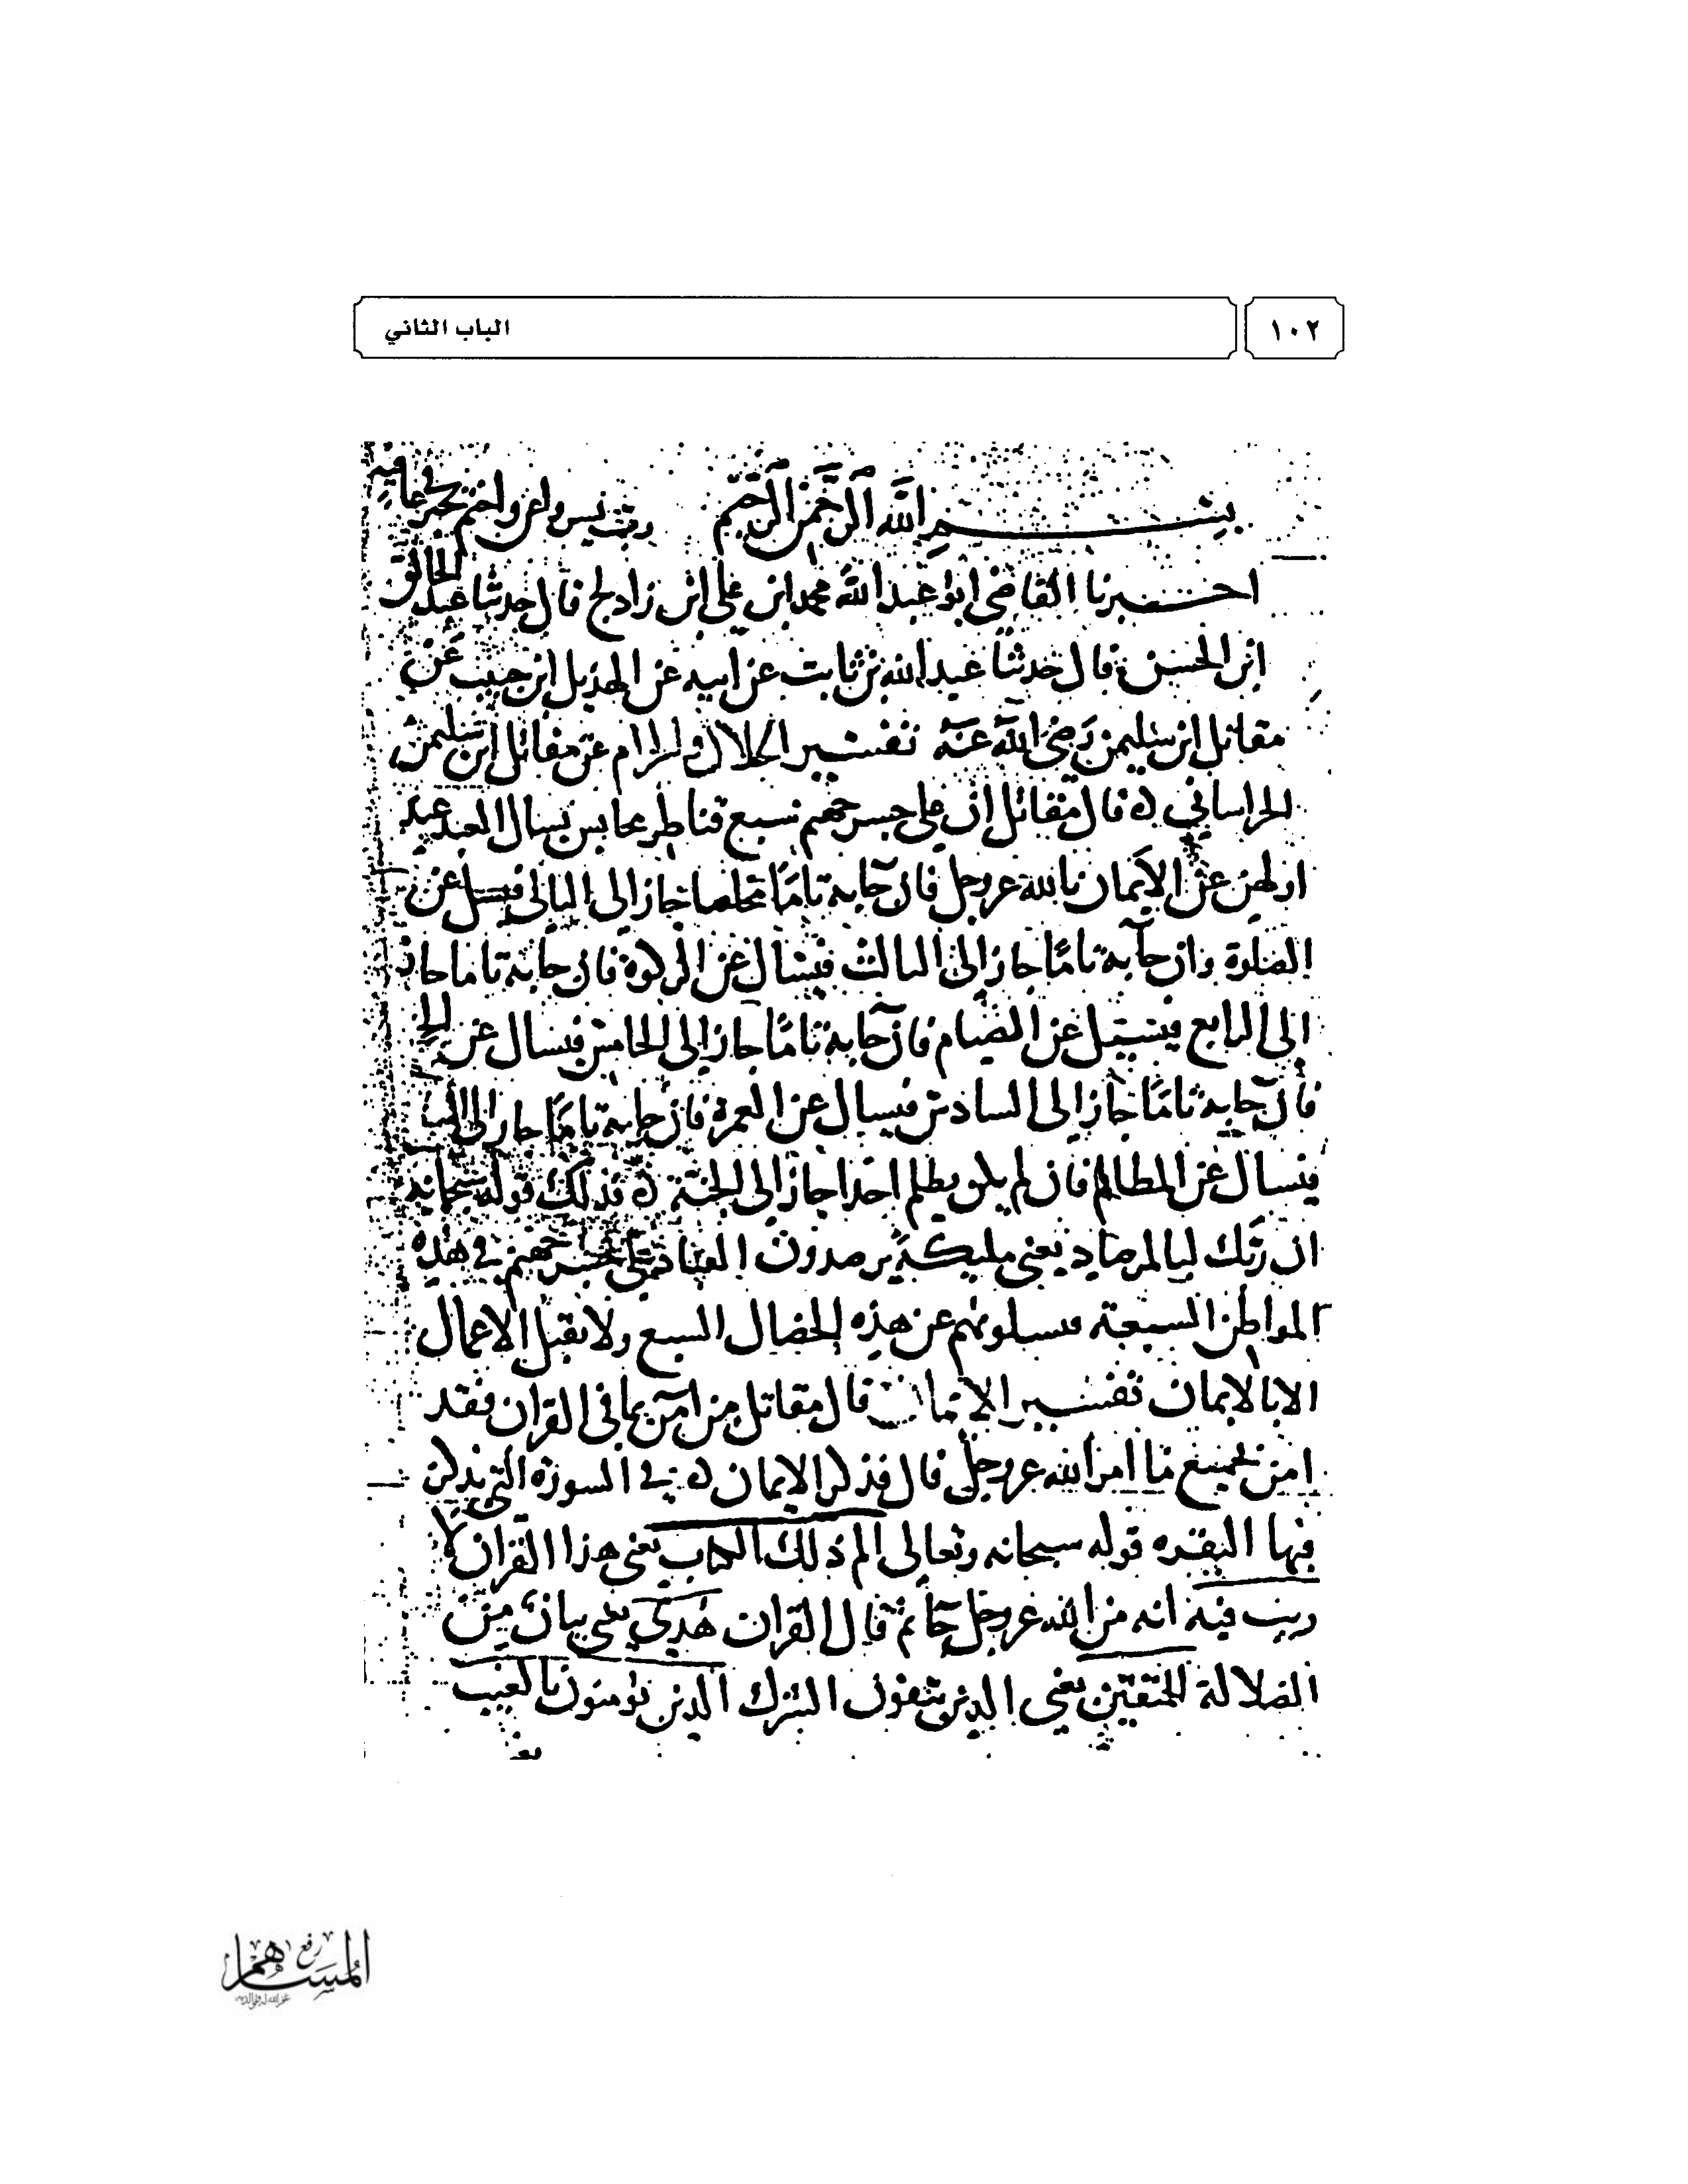 ١٠٢
الباب الثاني
بسم الله الرحمن الرحيم رب يسر واعن واختم بخير في عافيه
اخبرنا القاضي ابو عبد الله محمد ابن علي ابن زادلج قال حدثنا عبد الخالق
ابن الحسن قال حدثنا عبد الله بن ثابت عن ابيه عن الهذيل ابن حبيب عن
مقاتل ابن سليمن رضي الله عنه تفسير الحلال والحرام عن مقاتل ابن سليمن
الخراساني ه قال مقاتل ان على جسر جهنم سبع قناطر محابس يسال العبد عند
اولهن عن الايمان بالله عز وجل فان جا به تاما مخلصا جاز الى الثاني فيسل عن
الصلوة وان جا به تاما جاز الى الثالث فيسال عن الزكوة فان جا به تاما جاز
الى الرابع فيسيل عن الصيام فان جا به تاما جاز الى الخامس فيسال عن الحج
فان جا به تاما جاز الى السادس فيسال عن العمرة فان جا به تاما جاز الى السا
فيسال عن المظالم فان لم يكن يظلم احدا جاز الى الجنة ه فذلك قوله سبحانه
ان ربك لبالمرصاد يعني مليكة يرصدون العباد على جسر جهنم في هذه
المواطن السبعة فيسلونهم عن هذه الخصال السبع ولا يقبل الاعمال
الا بالايمان تفسير الايمان قال مقاتل من امن بما في القران فقد
امن بجميع ما امر الله عز وجل قال فذكر الايمان ه في السورة التي يذكر
فيها البقره قوله سبحانه وتعالى الم ذلك الكتاب يعني هذا القران لا
ريب فيه انه من الله عز وجل جا ثم قال القران هدى يعني بيان من
الضلالة للمتقين يعني الذين يتقون الشرك الذين يؤمنون بالغيب
يعني
رفع المساهم
غفر الله له ولوالديه